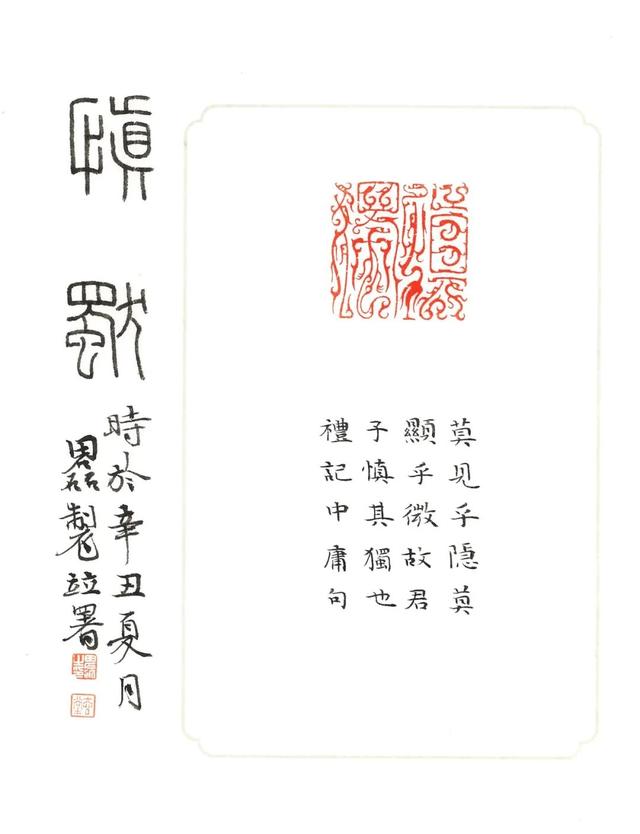 慎獨
莫見乎隱莫
顯乎微故君
子慎其獨也
禮記中庸句
慎獨
時於辛丑夏月
周磊製竝署